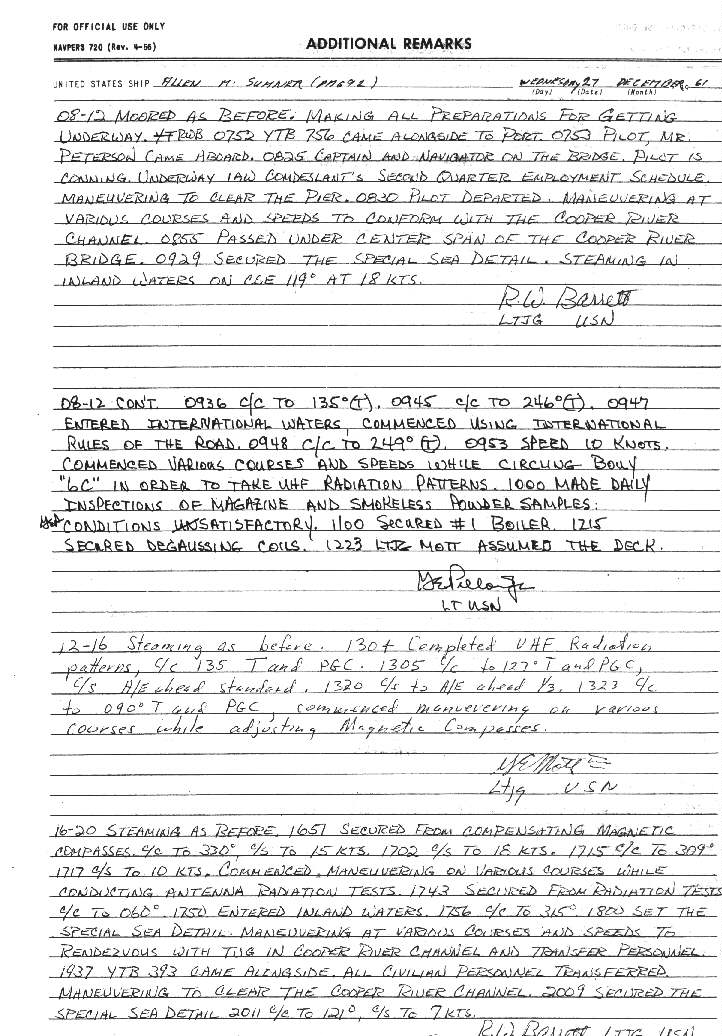 FOR OFFICIAL USE ONLY
NAVPERS 720 (Rev. 4-56)
ADDITIONAL REMARKS
UNITED STATES SHIP ALLEN M. SUMNER (DD692) WEDNESDAY 27 DECEMBER, 61
(Day) (Date) (Month)
08-12 MOORED AS BEFORE. MAKING ALL PREPARATIONS FOR GETTING
UNDERWAY. 0752 YTB 756 CAME ALONGSIDE TO PORT. 0753 PILOT, MR.
PETERSON CAME ABOARD. 0825 CAPTAIN AND NAVIGATOR ON THE BRIDGE. PILOT IS
CONNING. UNDERWAY IAW COMDESLANT'S SECOND QUARTER EMPLOYMENT SCHEDULE.
MANEUVERING TO CLEAR THE PIER. 0830 PILOT DEPARTED. MANEUVERING AT
VARIOUS COURSES AND SPEEDS TO CONFORM WITH THE COOPER RIVER
CHANNEL. 0855 PASSED UNDER CENTER SPAN OF THE COOPER RIVER
BRIDGE. 0929 SECURED THE SPECIAL SEA DETAIL. STEAMING IN
INLAND WATERS ON CSE 119° AT 18 KTS.
R.W. Barrett
LTJG USN
08-12 CONT. 0936 C/C TO 135°(T). 0945 C/C TO 246°(T). 0947
ENTERED INTERNATIONAL WATERS, COMMENCED USING INTERNATIONAL
RULES OF THE ROAD. 0948 C/C TO 249°(T). 0953 SPEED 10 KNOTS.
COMMENCED VARIOUS COURSES AND SPEEDS WHILE CIRCLING BOUY
"6C" IN ORDER TO TAKE UHF RADIATION PATTERNS. 1000 MADE DAILY
INSPECTIONS OF MAGAZINE AND SMOKELESS POWDER SAMPLES:
CONDITIONS SATISFACTORY. 1100 SECURED #1 BOILER. 1215
SECURED DEGAUSSING COILS. 1223 LTJG MOTT ASSUMED THE DECK.
LT USN
12-16 Steaming as before. 1304 Completed UHF Radiation
patterns, C/C 135 T and PGC. 1305 C/C to 127° T and PGC,
C/S A/E ahead standard. 1320 C/S to A/E ahead 1/3. 1323 C/C
to 090° T and PGC, commenced manuevering on various
courses while adjusting Magnetic Compasses.
Mott
Ltjg USN
16-20 STEAMING AS BEFORE. 1651 SECURED FROM COMPENSATING MAGNETIC
COMPASSES. C/C TO 330°, C/S TO 15 KTS. 1702 C/S TO 18 KTS. 1715 C/C TO 309°
1717 C/S TO 10 KTS. COMMENCED MANEUVERING ON VARIOUS COURSES WHILE
CONDUCTING ANTENNA RADIATION TESTS. 1743 SECURED FROM RADIATION TESTS
C/C TO 060°. 1750 ENTERED INLAND WATERS. 1756 C/C TO 315°. 1800 SET THE
SPECIAL SEA DETAIL. MANEUVERING AT VARIOUS COURSES AND SPEEDS TO
RENDEZVOUS WITH TUG IN COOPER RIVER CHANNEL AND TRANSFER PERSONNEL.
1937 YTB 393 CAME ALONGSIDE. ALL CIVILIAN PERSONNEL TRANSFERRED.
MANEUVERING TO CLEAR THE COOPER RIVER CHANNEL. 2009 SECURED THE
SPECIAL SEA DETAIL 2011 C/C TO 121°, C/S TO 7 KTS.
R.W. BARRETT LTJG USN